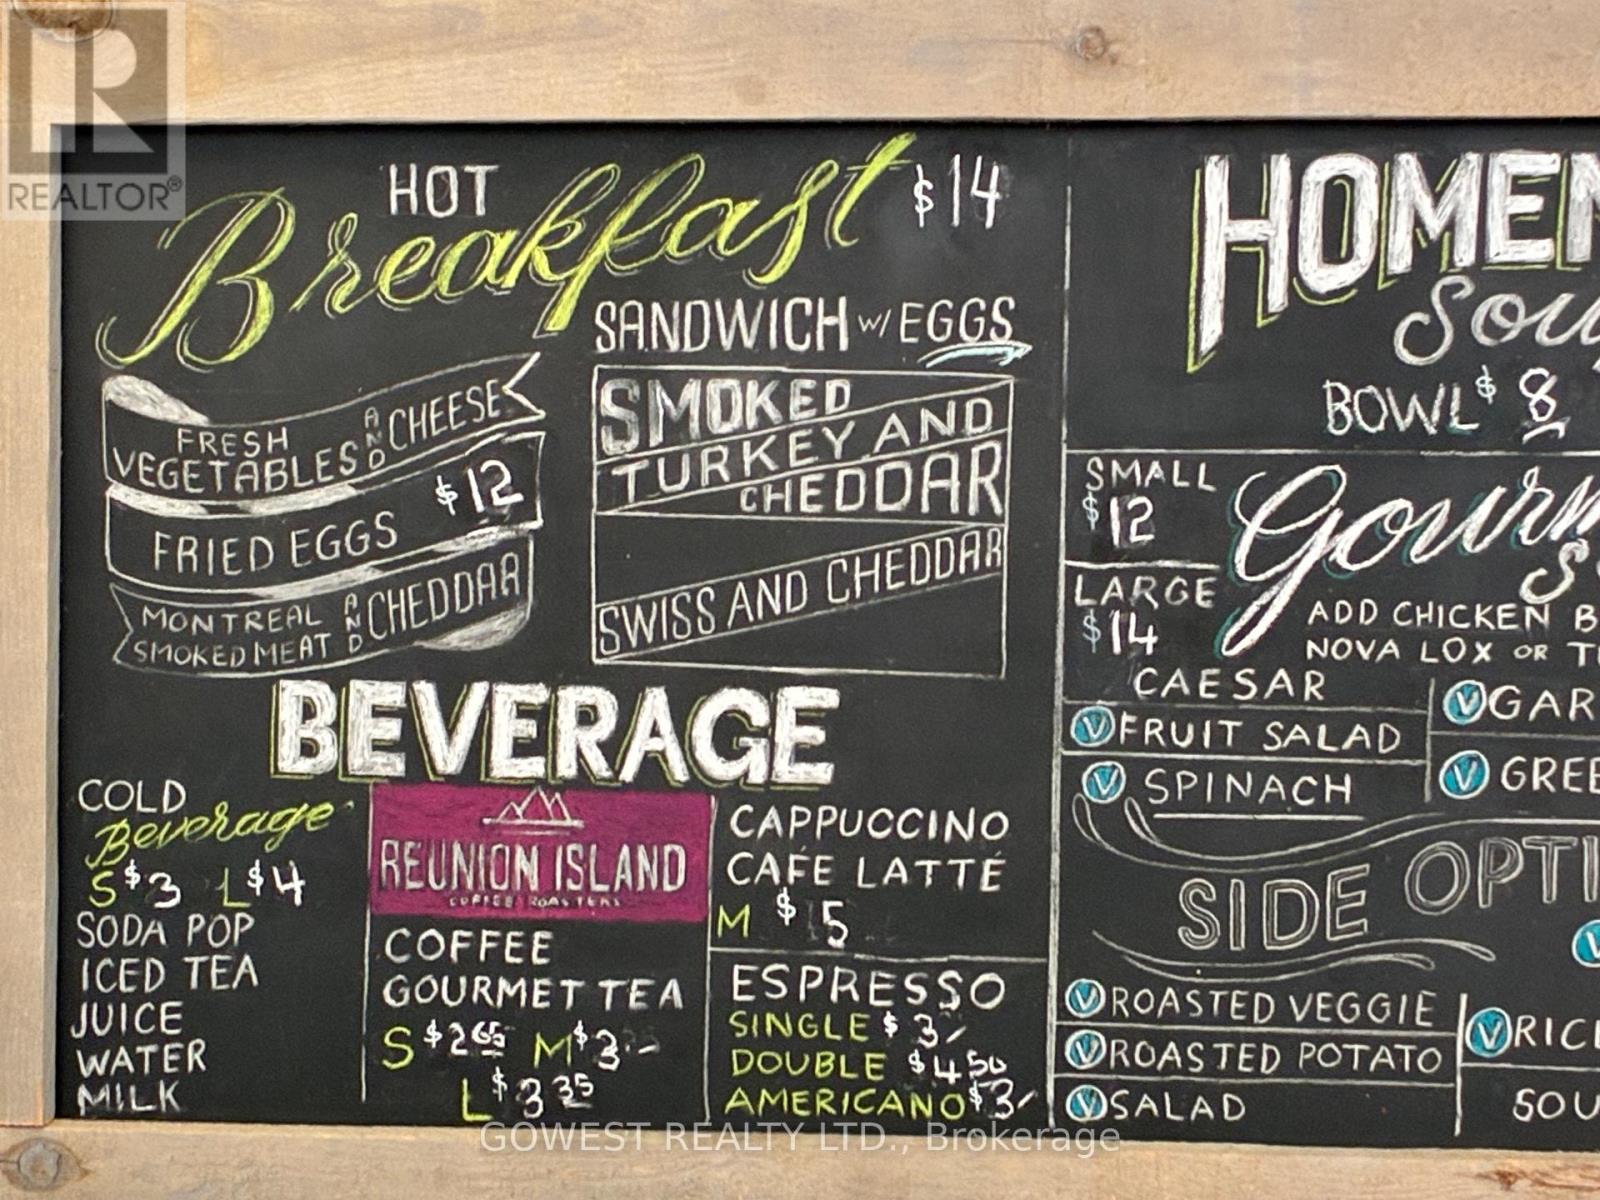 REALTOR®
HOT
Breakfast
$14
SANDWICH w/ EGGS
FRESH
VEGETABLES AND CHEESE
$12
FRIED EGGS
MONTREAL
SMOKED MEAT AND CHEDDAR
SMOKED
TURKEY AND
CHEDDAR
SWISS AND CHEDDAR
BEVERAGE
COLD
Beverage
S $3 L $4
SODA POP
ICED TEA
JUICE
WATER
MILK
REUNION ISLAND
COFFEE ROASTERS
COFFEE
GOURMET TEA
S $2.65 M $3.-
L $3.35
CAPPUCCINO
CAFÉ LATTÉ
M $5
ESPRESSO
SINGLE $3/
DOUBLE $4.50
AMERICANO $3/
HOMEM
Sou
BOWL $8
SMALL
$12
LARGE
$14
Gourm
S
ADD CHICKEN B
NOVA LOX OR T
CAESAR
V FRUIT SALAD
V SPINACH
V GAR
V GREE
SIDE OPTI
V
V ROASTED VEGGIE
V ROASTED POTATO
V SALAD
V RICE
SOU
GOWEST REALTY LTD., Brokerage